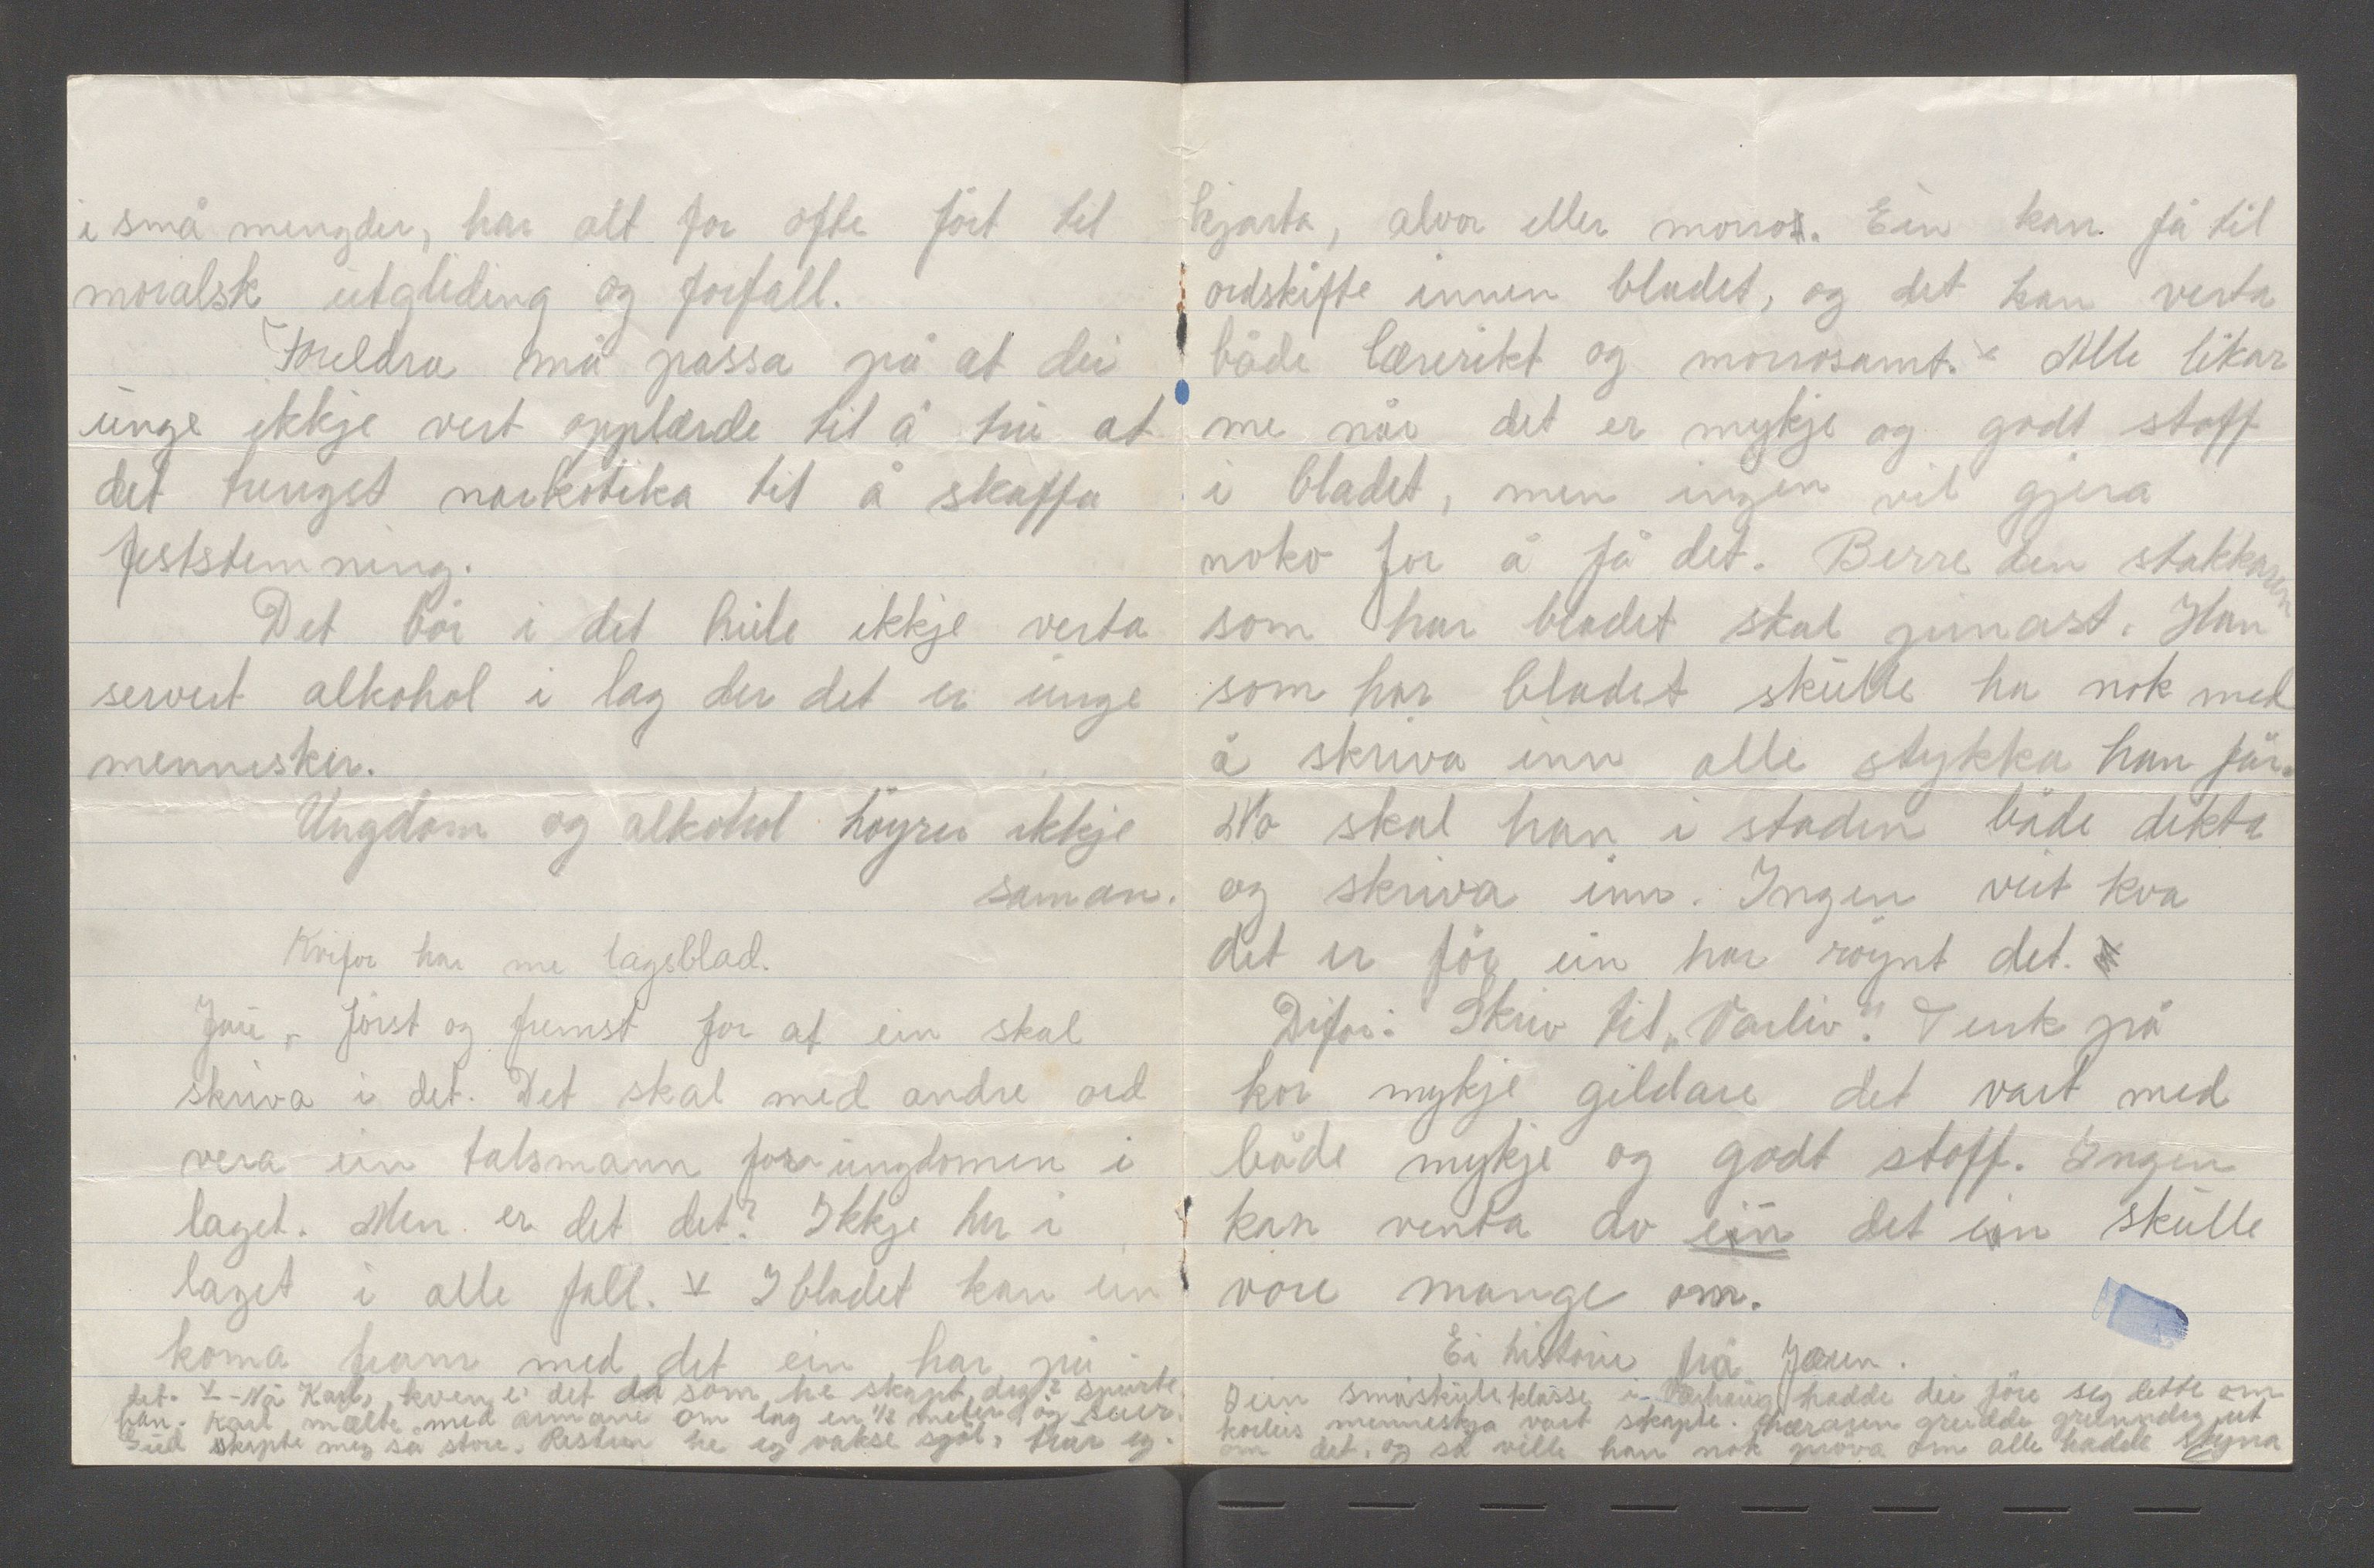 i små mengder, har alt for ofte fört til
moralsk utgliding og forfall.
Foreldra må passa på at dei
unge ikkje vert opplærde til å tru at
det trengst narkotika til å skaffa
feststemning.
Det bör i det heile ikkje verta
servert alkohol i lag der det er unge
mennesker.
Ungdom og alkohol höyrer ikkje
saman.
Kvifor har me lagsblad.
Jau, först og fremst for at ein skal
skriva i det. Det skal med andre ord
vera ein talsmann for ungdomen i
laget. Men er det det? Ikkje her i
laget i alle fall. I bladet kan ein
koma fram med det ein har på
hjarta, alvor eller morro. Ein kan få til
ordskifte innen bladet, og det kan verta
både lærerikt og morrosamt. Alle likar
me når det er mykje og godt stoff
i bladet, men ingen vil gjera
noko for å få det. Berre den stakkaren
som har bladet skal pinast. Han
som har bladet skulle ha nok med
å skriva inn alle stykka han får.
No skal han i staden både dikta
og skriva inn. Ingen veit kva
det er för ein har röynt det.
Difor: Skriv til „Varliv". Tenk på
kor mykje gildare det vart med
både mykje og godt stoff. Ingen
kan venta av ein det ein skulle
vore mange om.
Ei historie frå Jæren.
I ein småskuleklasse i Varhaug hadde dei före seg dette om
korleis menneskja vart skapte. Læraren greidde grunndig ut
om det, og så ville han nok pröva om alle hadde skjöna
det. - Nå Karl, kven e' det då som he skapt deg? spurte
han. Karl mælte med armane om lag en 1/2 meter og seier.
Gud skapte meg så store. Resten he eg vakse sjöl, trur eg.